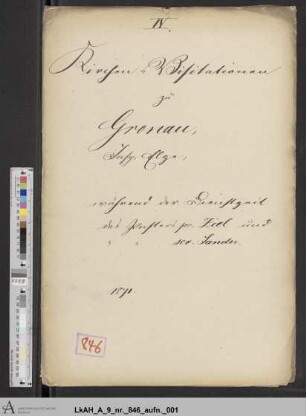 IV.
Kirchen-Visitationen
zu
Gronau,
Insp. Elze,
während der Dienstzeit
des Pastors pr. Tiel und
" " sec. Sander.
1871.
846
LkAH_A_9_nr._846_aufn._001